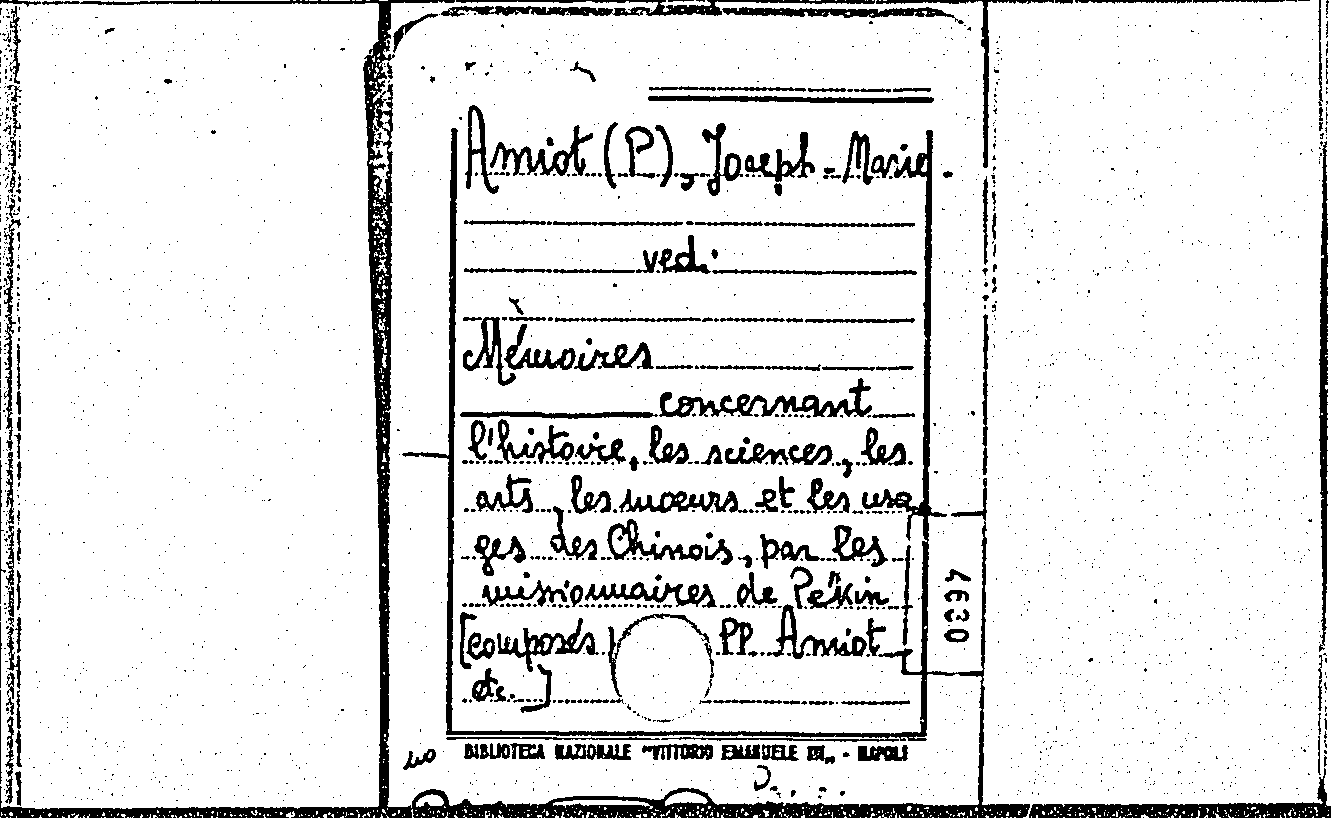 Amiot (P), Joseph-Marie.
ved.
Mémoires
concernant
l'histoire, les sciences, les
arts, les moeurs et les usa
ges des Chinois, par les
missionnaires de Pékin
[composés PP Amiot
etc.]
4630
BIBLIOTECA NAZIONALE "VITTORIO EMANUELE III„ - NAPOLI